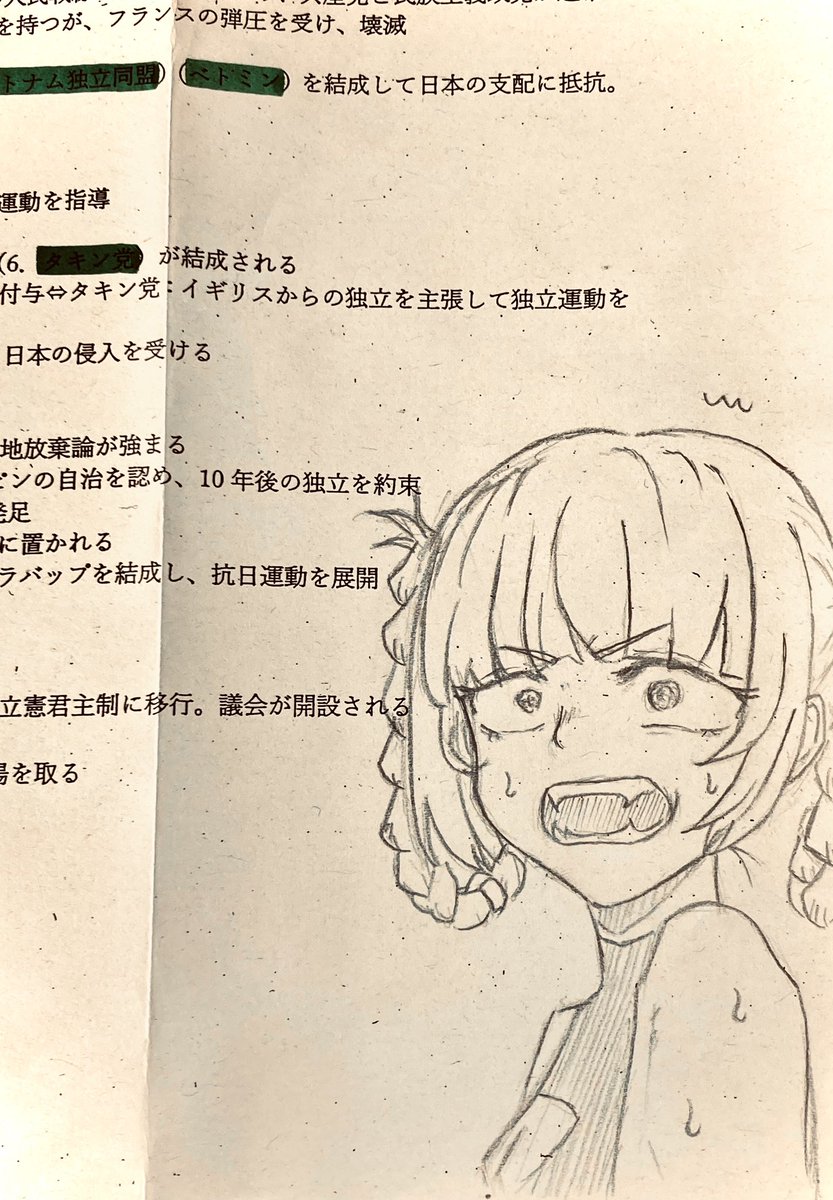 を持つが、フランスの弾圧を受け、壊滅
トナム独立同盟)(ベトミン)を結成して日本の支配に抵抗。
運動を指導
(6. タキン党)が結成される
付与⇔タキン党：イギリスからの独立を主張して独立運動を
日本の侵入を受ける
地放棄論が強まる
ピンの自治を認め、10年後の独立を約束
発足
に置かれる
ラバップを結成し、抗日運動を展開
立憲君主制に移行。議会が開設される
場を取る